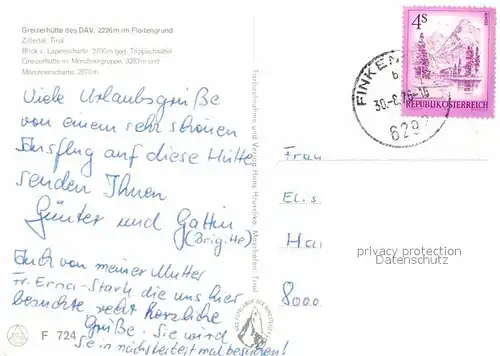 Greizerhütte des DAV. 2226m im Floitengrund
Zillertal, Tirol
Blick v. Lapenscharte 2700m geg. Trippachsattel
Greizerhütte m. Mörchnergruppe, 3283m und
Mörchnerscharte, 2870m
Viele Urlaubsgrüße
von einem sehr schönen
Ausflug auf diese Hütte
senden Ihnen
Günter und Gattin
(Brigitte)
Auch von meiner Mutter
Fr. Erna Stark die uns hier
besuchte recht herzliche
Grüße. Sie wird
Sie in nächster Zeit mal besuchen!
F 724
Farbaufnahme und Verlag Hans Hruschka, Mayrhofen, Tirol
4s
REPUBLIK ÖSTERREICH
FINKEN
30.-8.76-16
6292
Frau
Elis
Hai
8000
privacy protection
Datenschutz